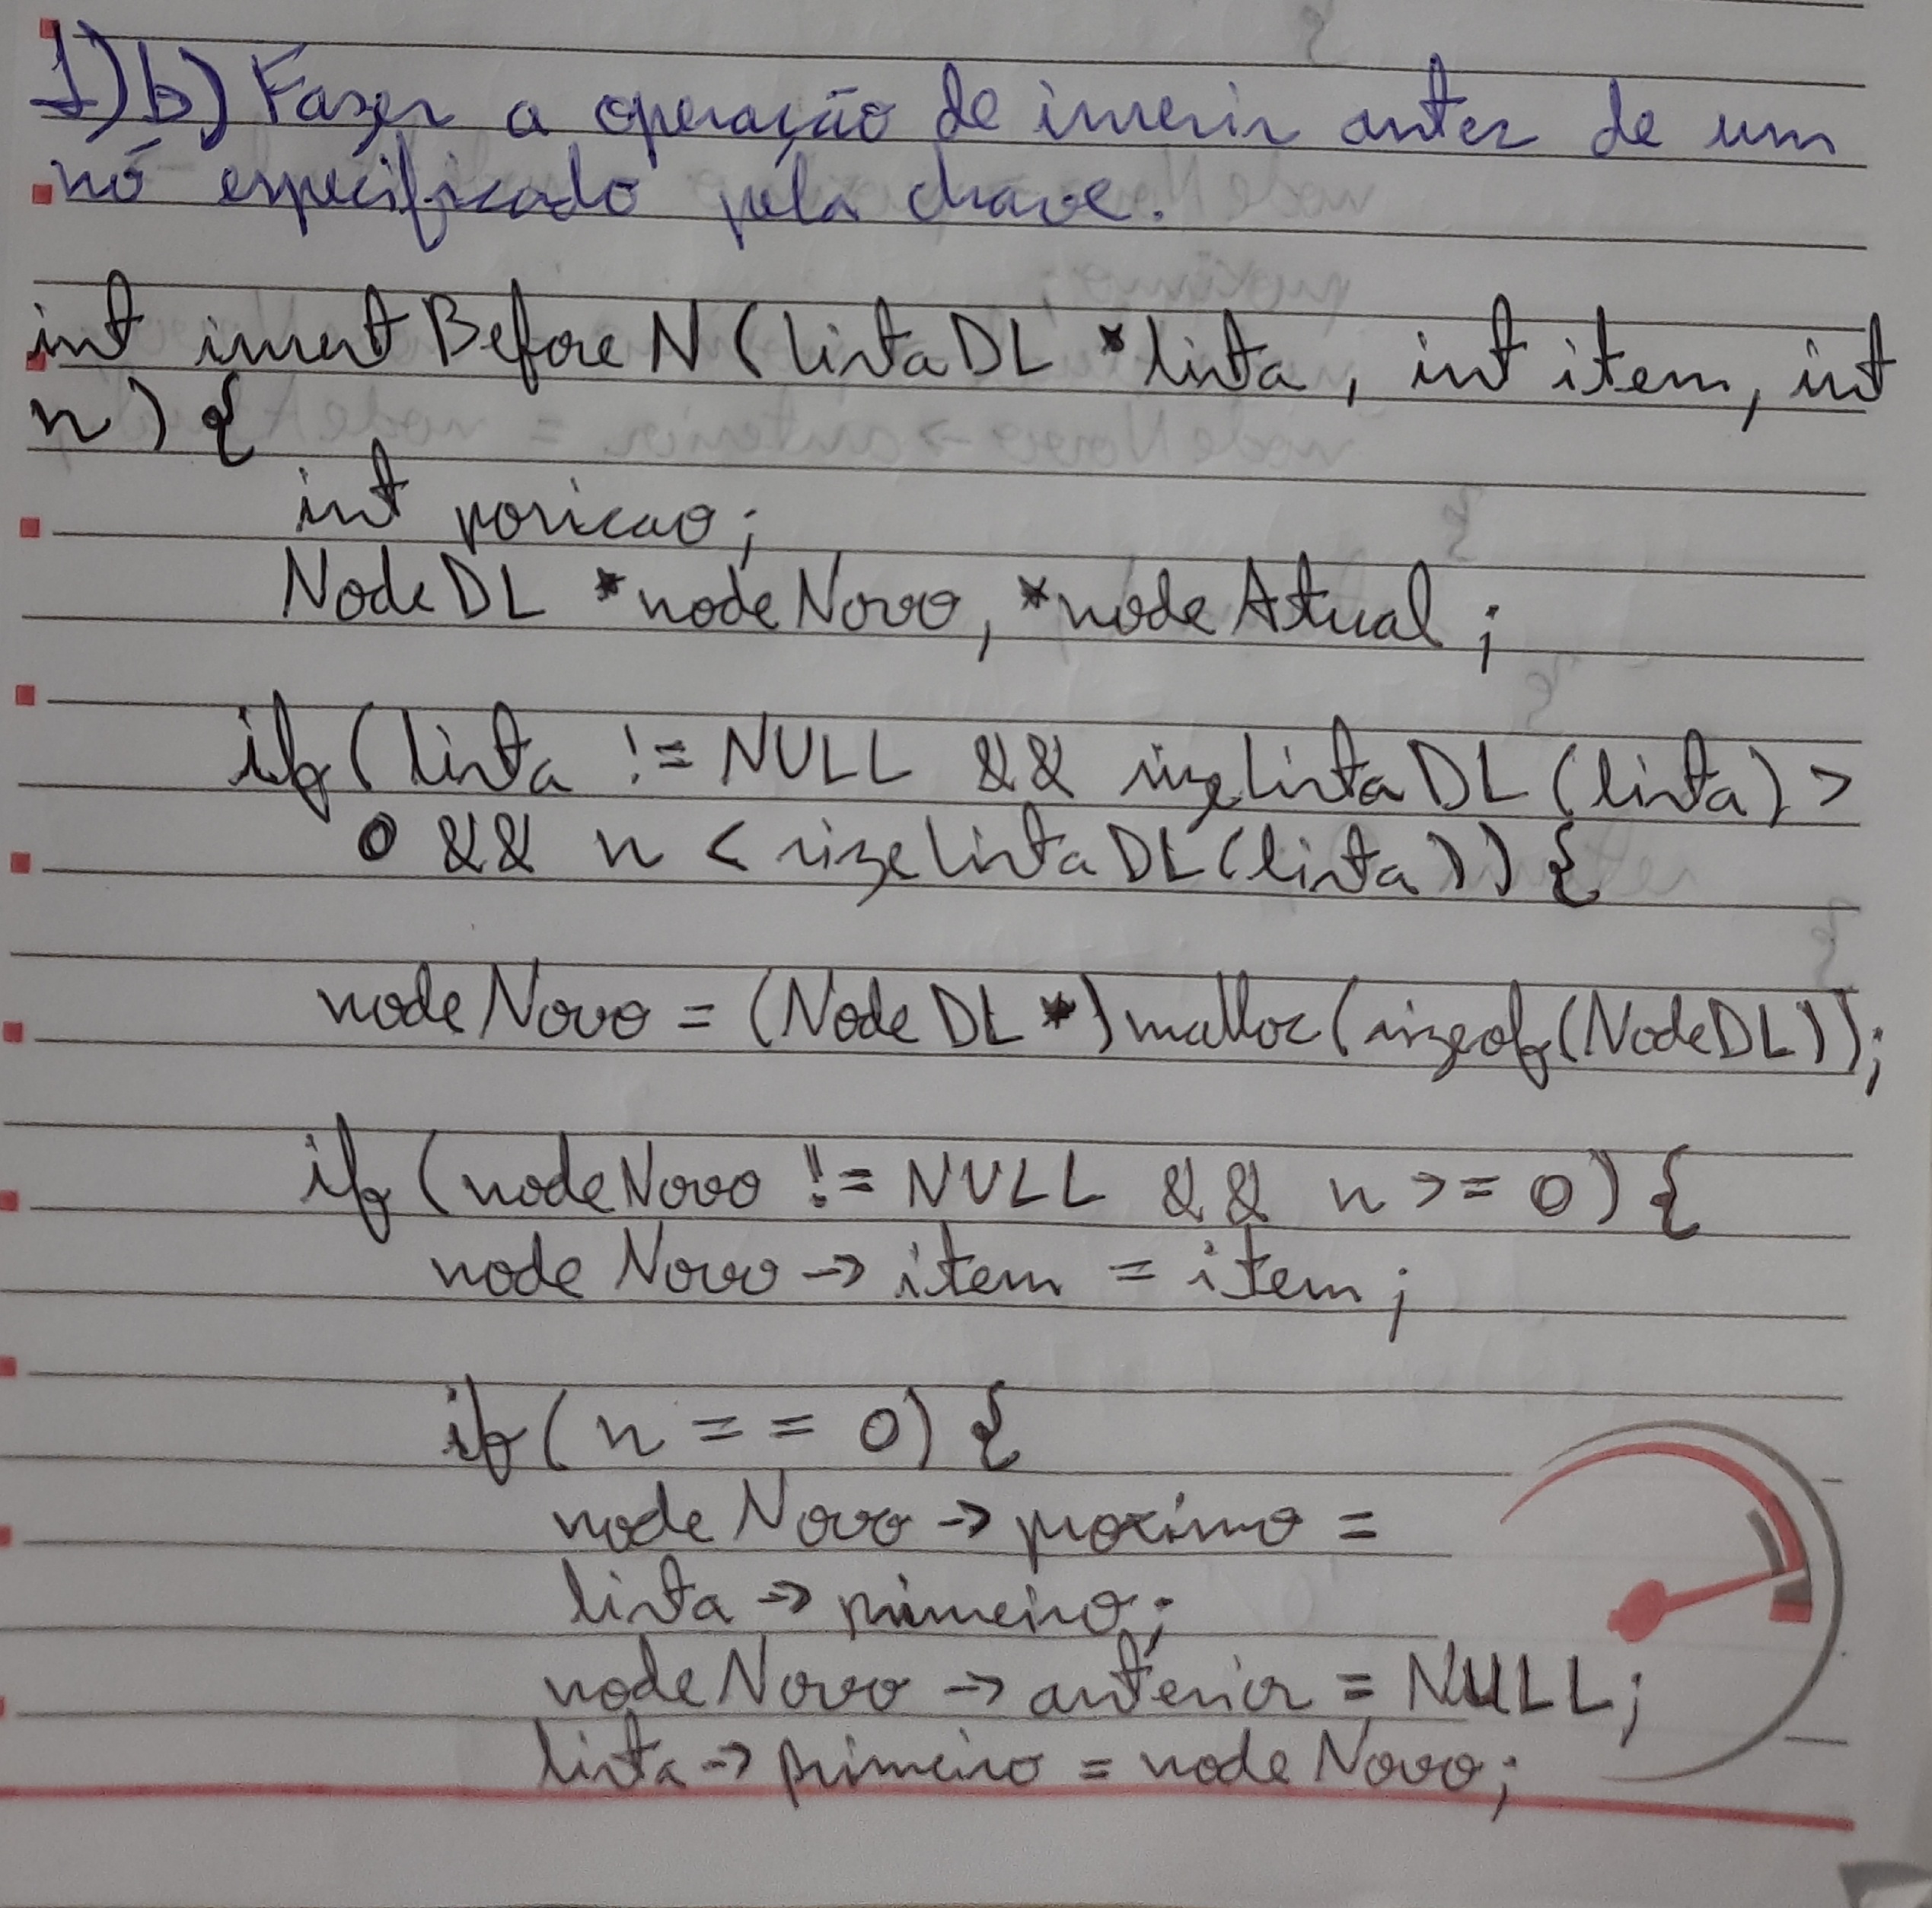 1)b) Fazer a operação de inserir antes de um
nó especificado pela chave.
int insertBeforeN(listaDL *lista, int item, int
n) {
int posicao;
NodeDL *nodeNovo, *nodeAtual;
if(lista != NULL && sizelistaDL(lista) >
0 && n < sizelistaDL(lista)) {
nodeNovo = (NodeDL *) malloc(sizeof(NodeDL));
if (nodeNovo != NULL && n >= 0) {
nodeNovo -> item = item;
if(n == 0) {
nodeNovo -> proximo =
lista -> primeiro;
nodeNovo -> anterior = NULL;
lista -> primeiro = nodeNovo;